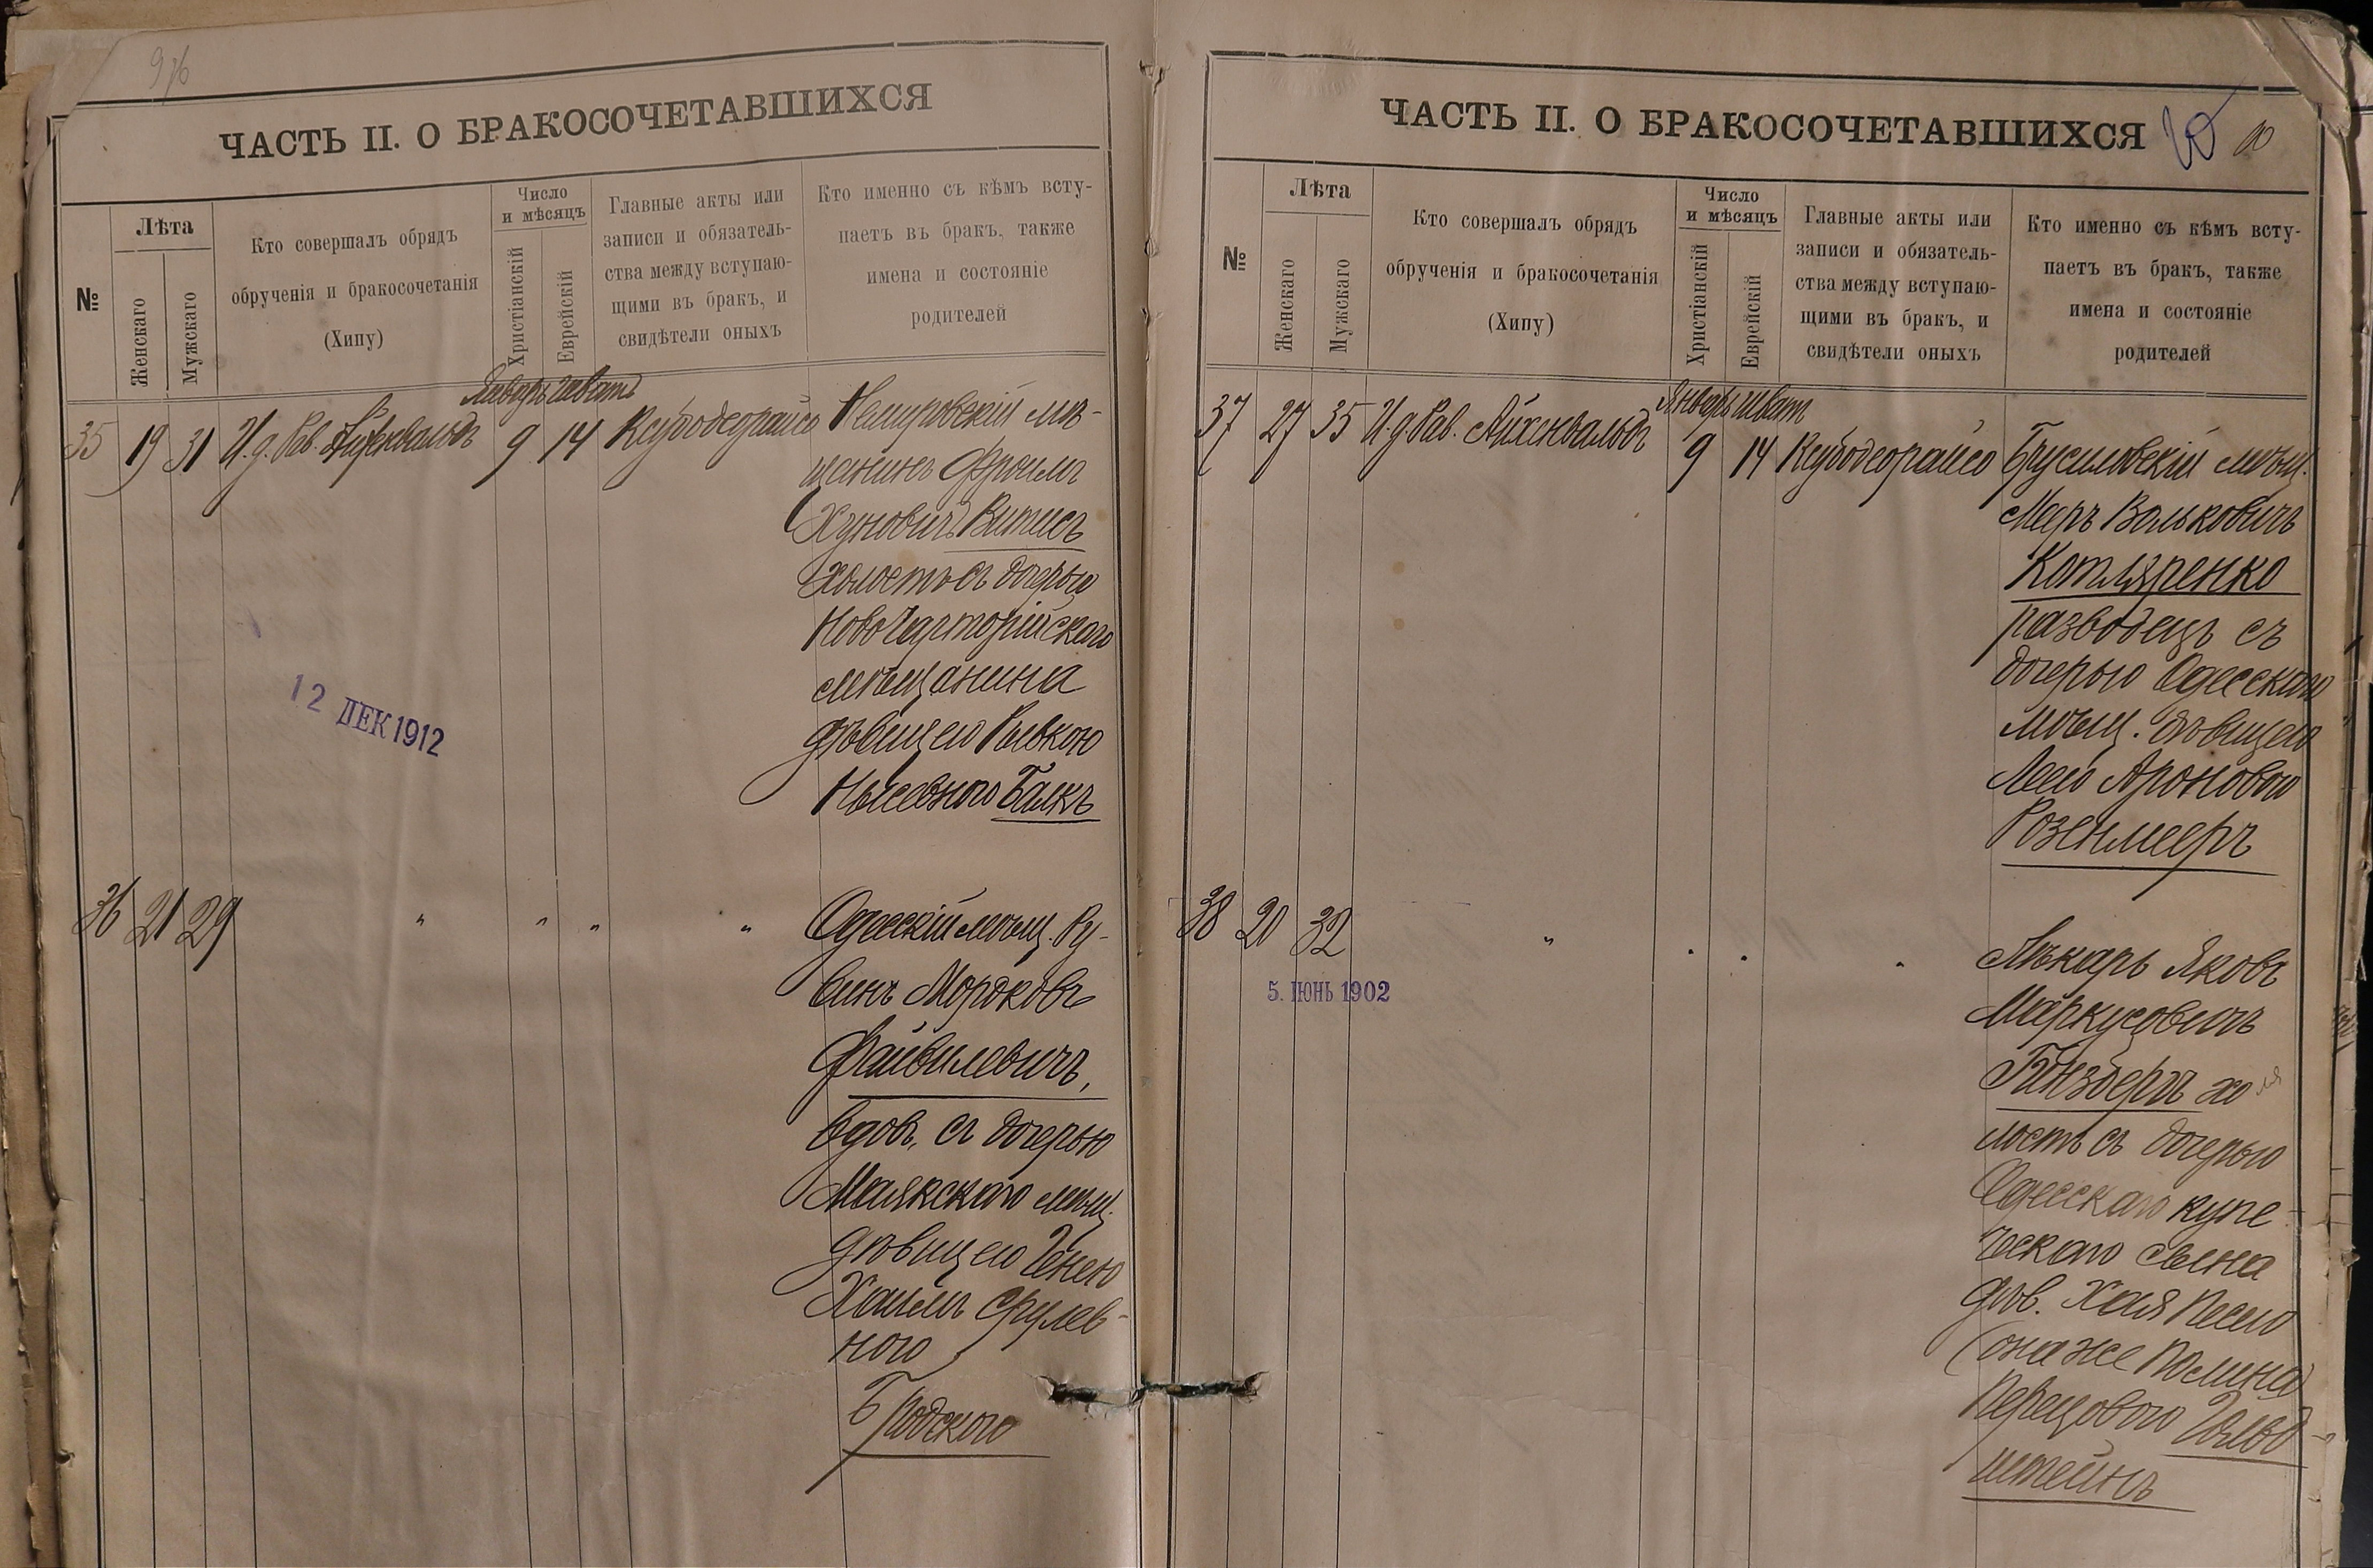 976
ЧАСТЬ II. О БРАКОСОЧЕТАВШИХСЯ
№
Лѣта
Женскаго
Мужскаго
Кто совершалъ обрядъ
обрученія и бракосочетанія
(Хипу)
Число
и мѣсяцъ
Христіанскій
Еврейскій
Главные акты или
записи и обязатель-
ства между вступаю-
щими въ бракъ, и
свидѣтели оныхъ
Кто именно съ кѣмъ всту-
паетъ въ бракъ, также
имена и состояніе
родителей
Январь шватъ
35 19 31 И.д. Рав. Айхенвальдъ 9 14 Ксубодеорайсо Немировскій мѣ-
щанинъ Фроимъ
Хуновичъ Витисъ
холостъ съ дочерью
Ново Чарторійскаго
мѣщанина
дѣвицею Рывкою
Балкъ
12 ДЕК 1912
36 21 29 " " " " Одесскій мѣщ. Ру-
винъ Мордковъ
Файвилевичъ,
вдов. съ дочерью
Маякскаго мѣщ.
дѣвицею Генею
Хаимъ Срулев-
ною
Бродскою
ЧАСТЬ II. О БРАКОСОЧЕТАВШИХСЯ
№
Лѣта
Женскаго
Мужскаго
Кто совершалъ обрядъ
обрученія и бракосочетанія
(Хипу)
Число
и мѣсяцъ
Христіанскій
Еврейскій
Главные акты или
записи и обязатель-
ства между вступаю-
щими въ бракъ, и
свидѣтели оныхъ
Кто именно съ кѣмъ всту-
паетъ въ бракъ, также
имена и состояніе
родителей
Январь шват
37 27 35 И.д. Рав. Айхенвальдъ 9 14 Ксубодеорайсо Брусиловскій мѣщ.
Мееръ Вольковичъ
Котляренко
разводецъ съ
дочерью Одесскаго
мѣщ. дѣвицею
Леею Ароновою
Розенмееръ
38 20 32 " " " " Лѣкарь Яковъ
Маркусовичъ
Гинзбергъ хо
лостъ съ дочерью
Одесскаго купе-
ческаго сына
дѣв. Хая Песею
(она же Полина)
Перецовою Гольд-
штейнъ
5. ІЮНЬ 1902